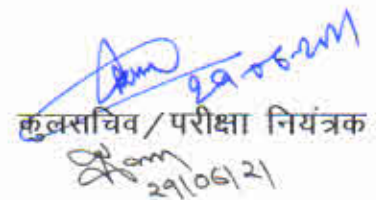 29-06-2021
कुलसचिव / परीक्षा नियंत्रक
29/06/21